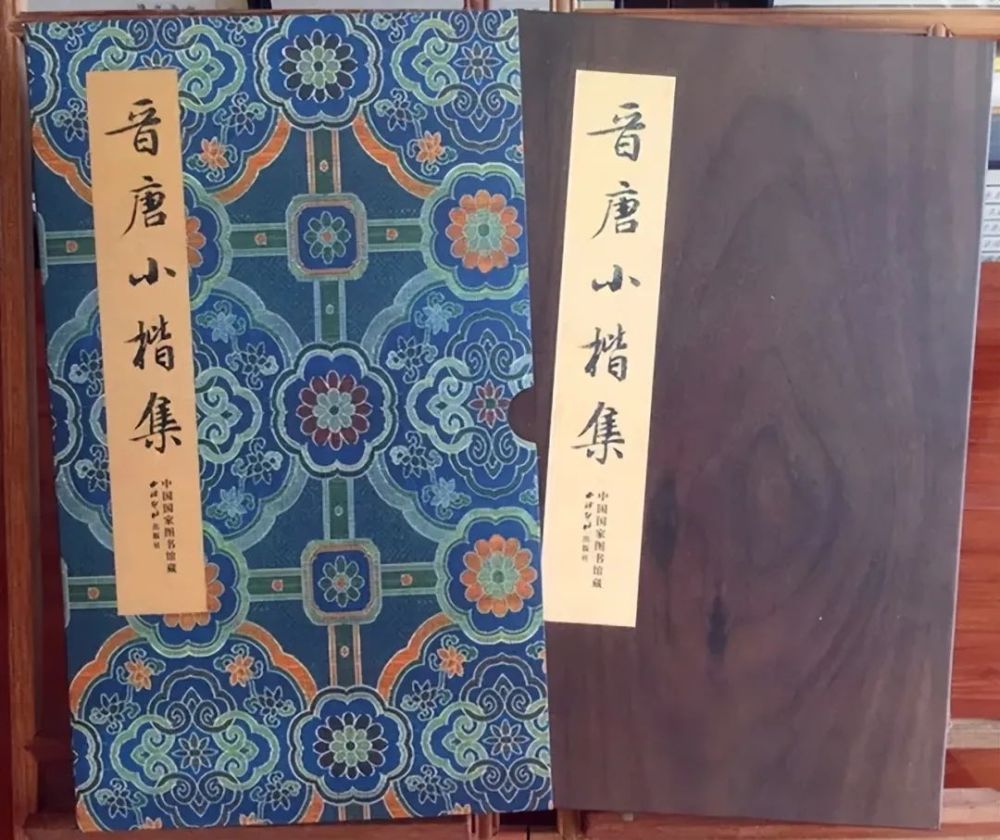 晋唐小楷集
中国国家图书馆藏
西泠印社出版社
晋唐小楷集
中国国家图书馆藏
西泠印社出版社